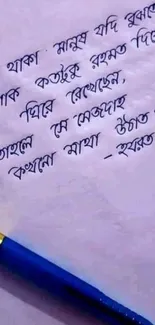 থাকা মানুষ যদি বুঝতো
কতটুকু রহমত দিয়ে
ঘিরে রেখেছেন,
তাহলে সে সেজদাহ
কখনো মাথা উঠাত
- হযরত